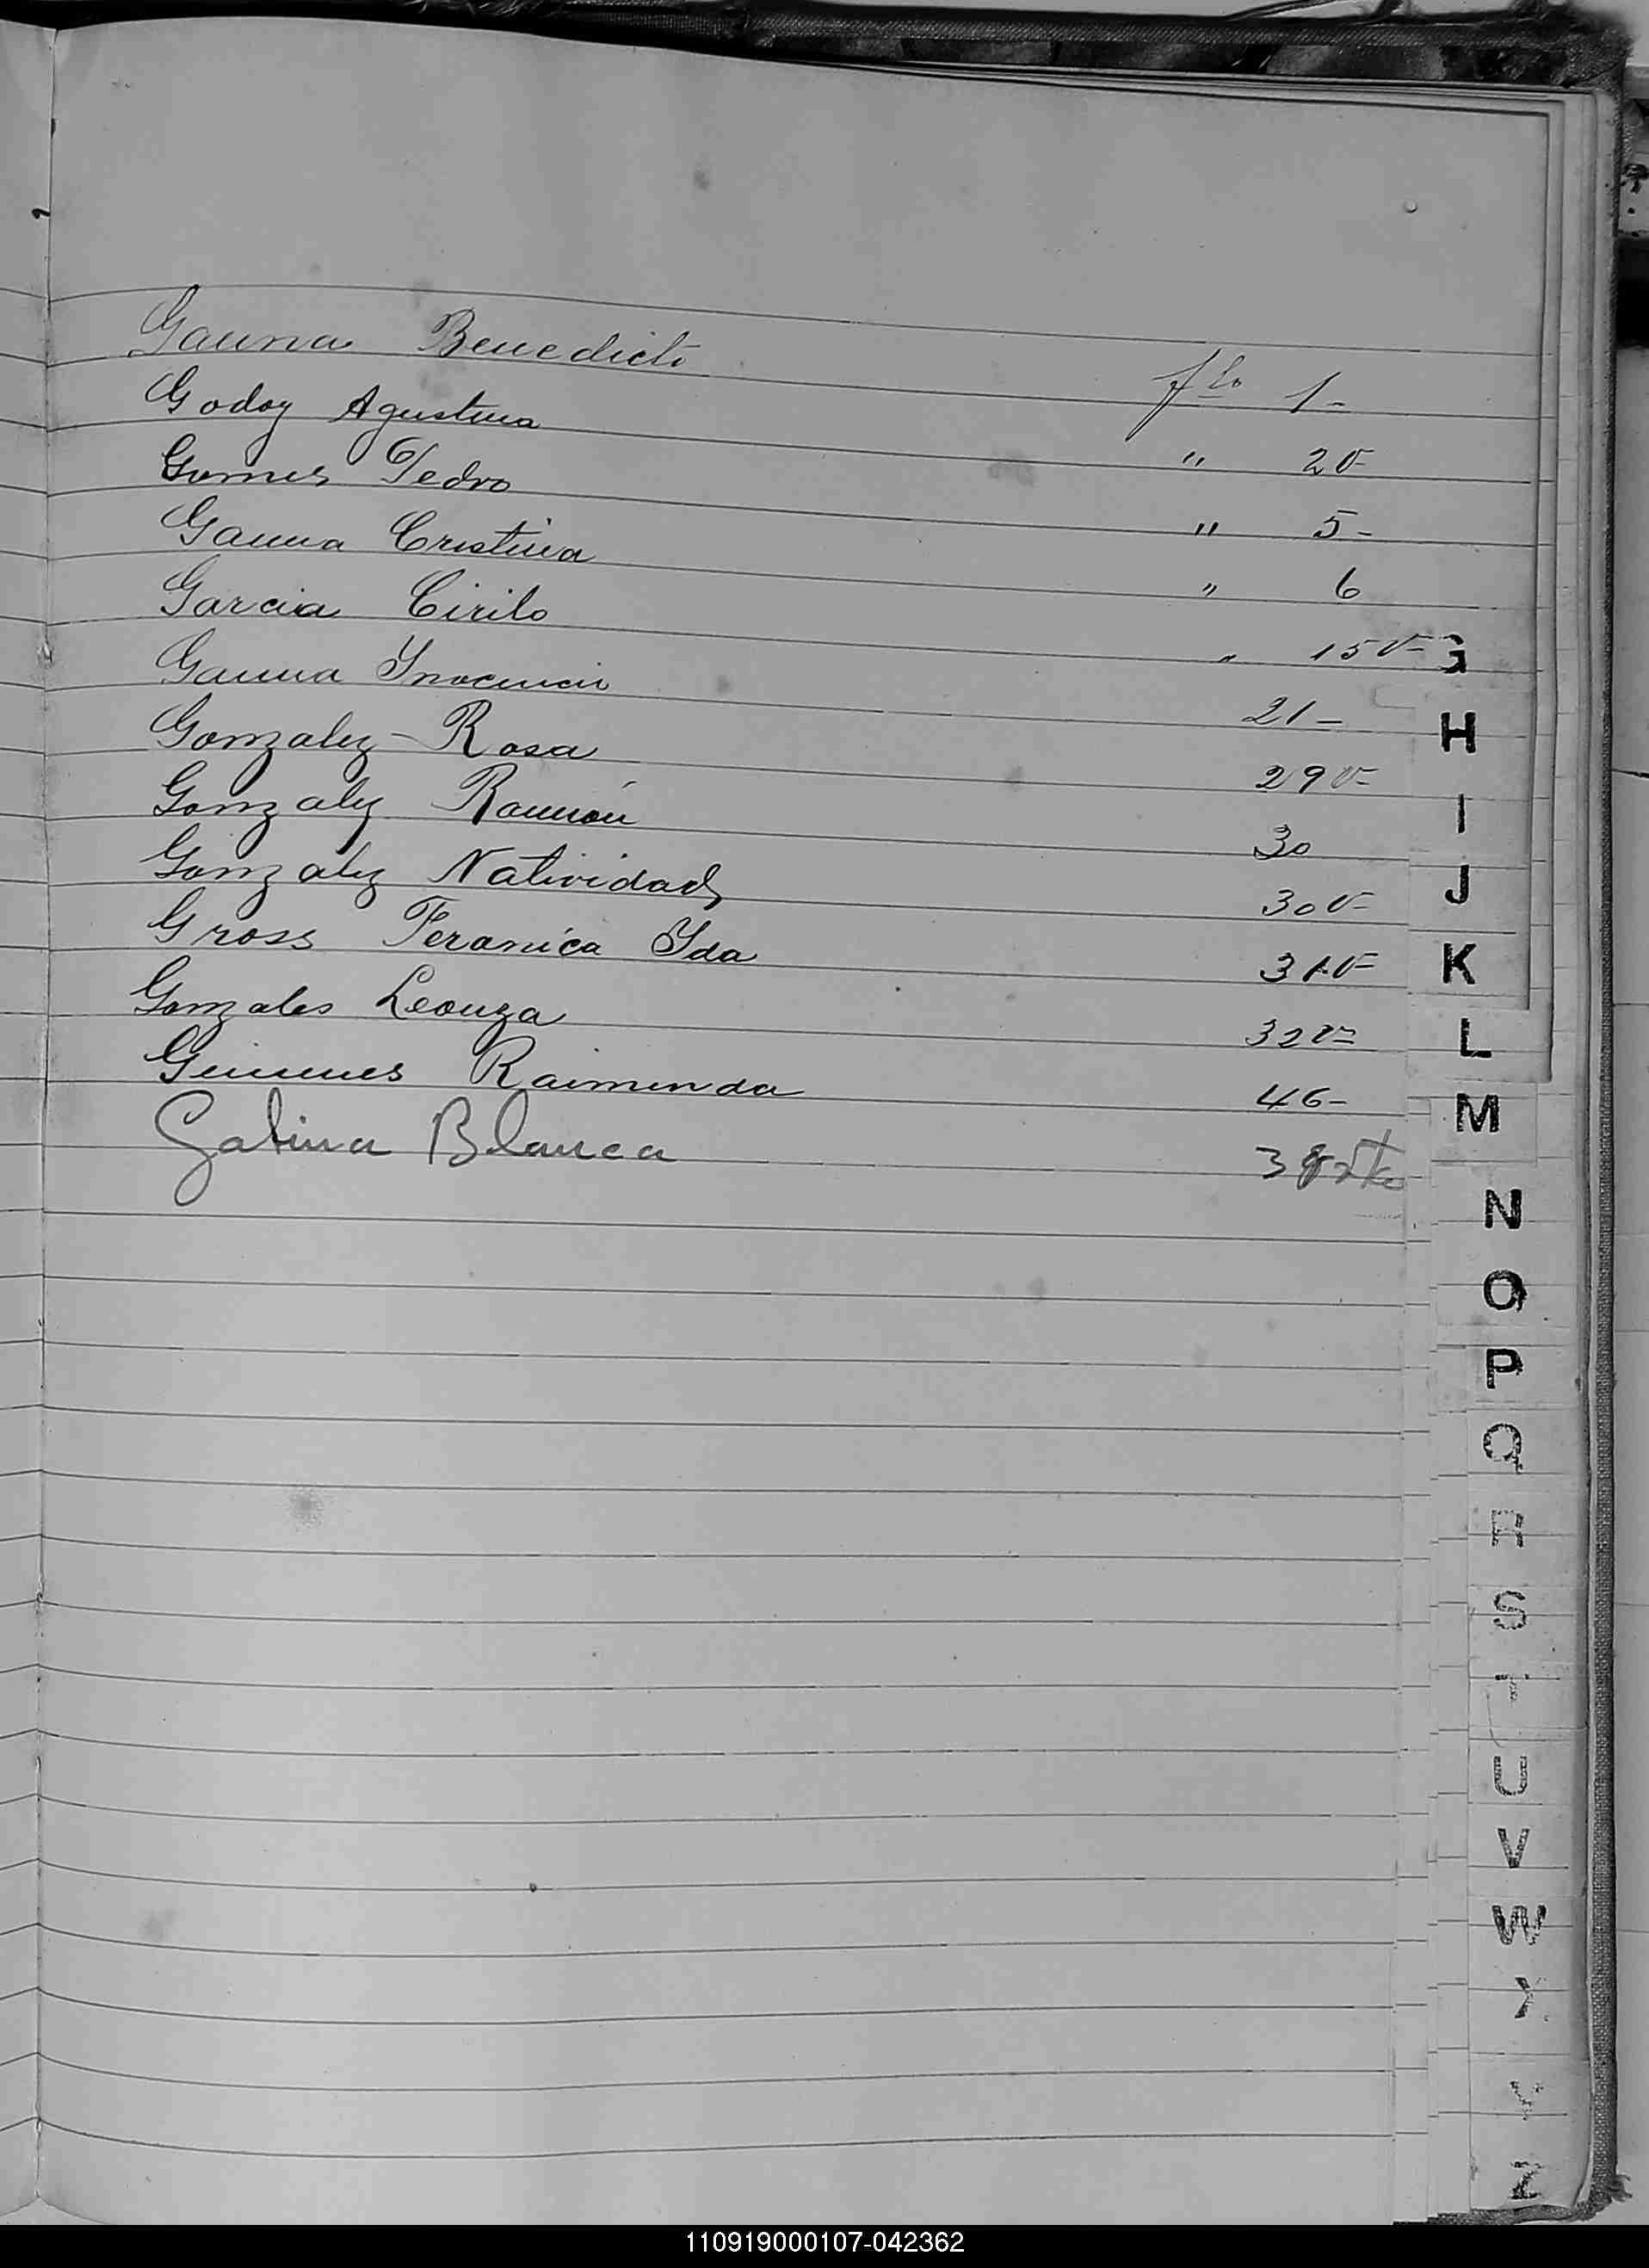 Gauna Benedicto flo 1-
Godoy Agustina " 2v-
Gomes Pedro " 5-
Gauna Cristina " 6
Garcia Cirilo " 15v-
Gauna Inocencia 21-
Gonzalez Rosa 29v-
Gonzalez Ramón 30
Gonzalez Natividad 30v-
Gross Feranica Yda 31v-
Gonzales Leonza 32v-
Gimenes Raimunda 46-
Galina Blanca 38
G
H
I
J
K
L
M
N
O
P
Q
R
S
T
U
V
W
X
Y
Z
110919000107-042362